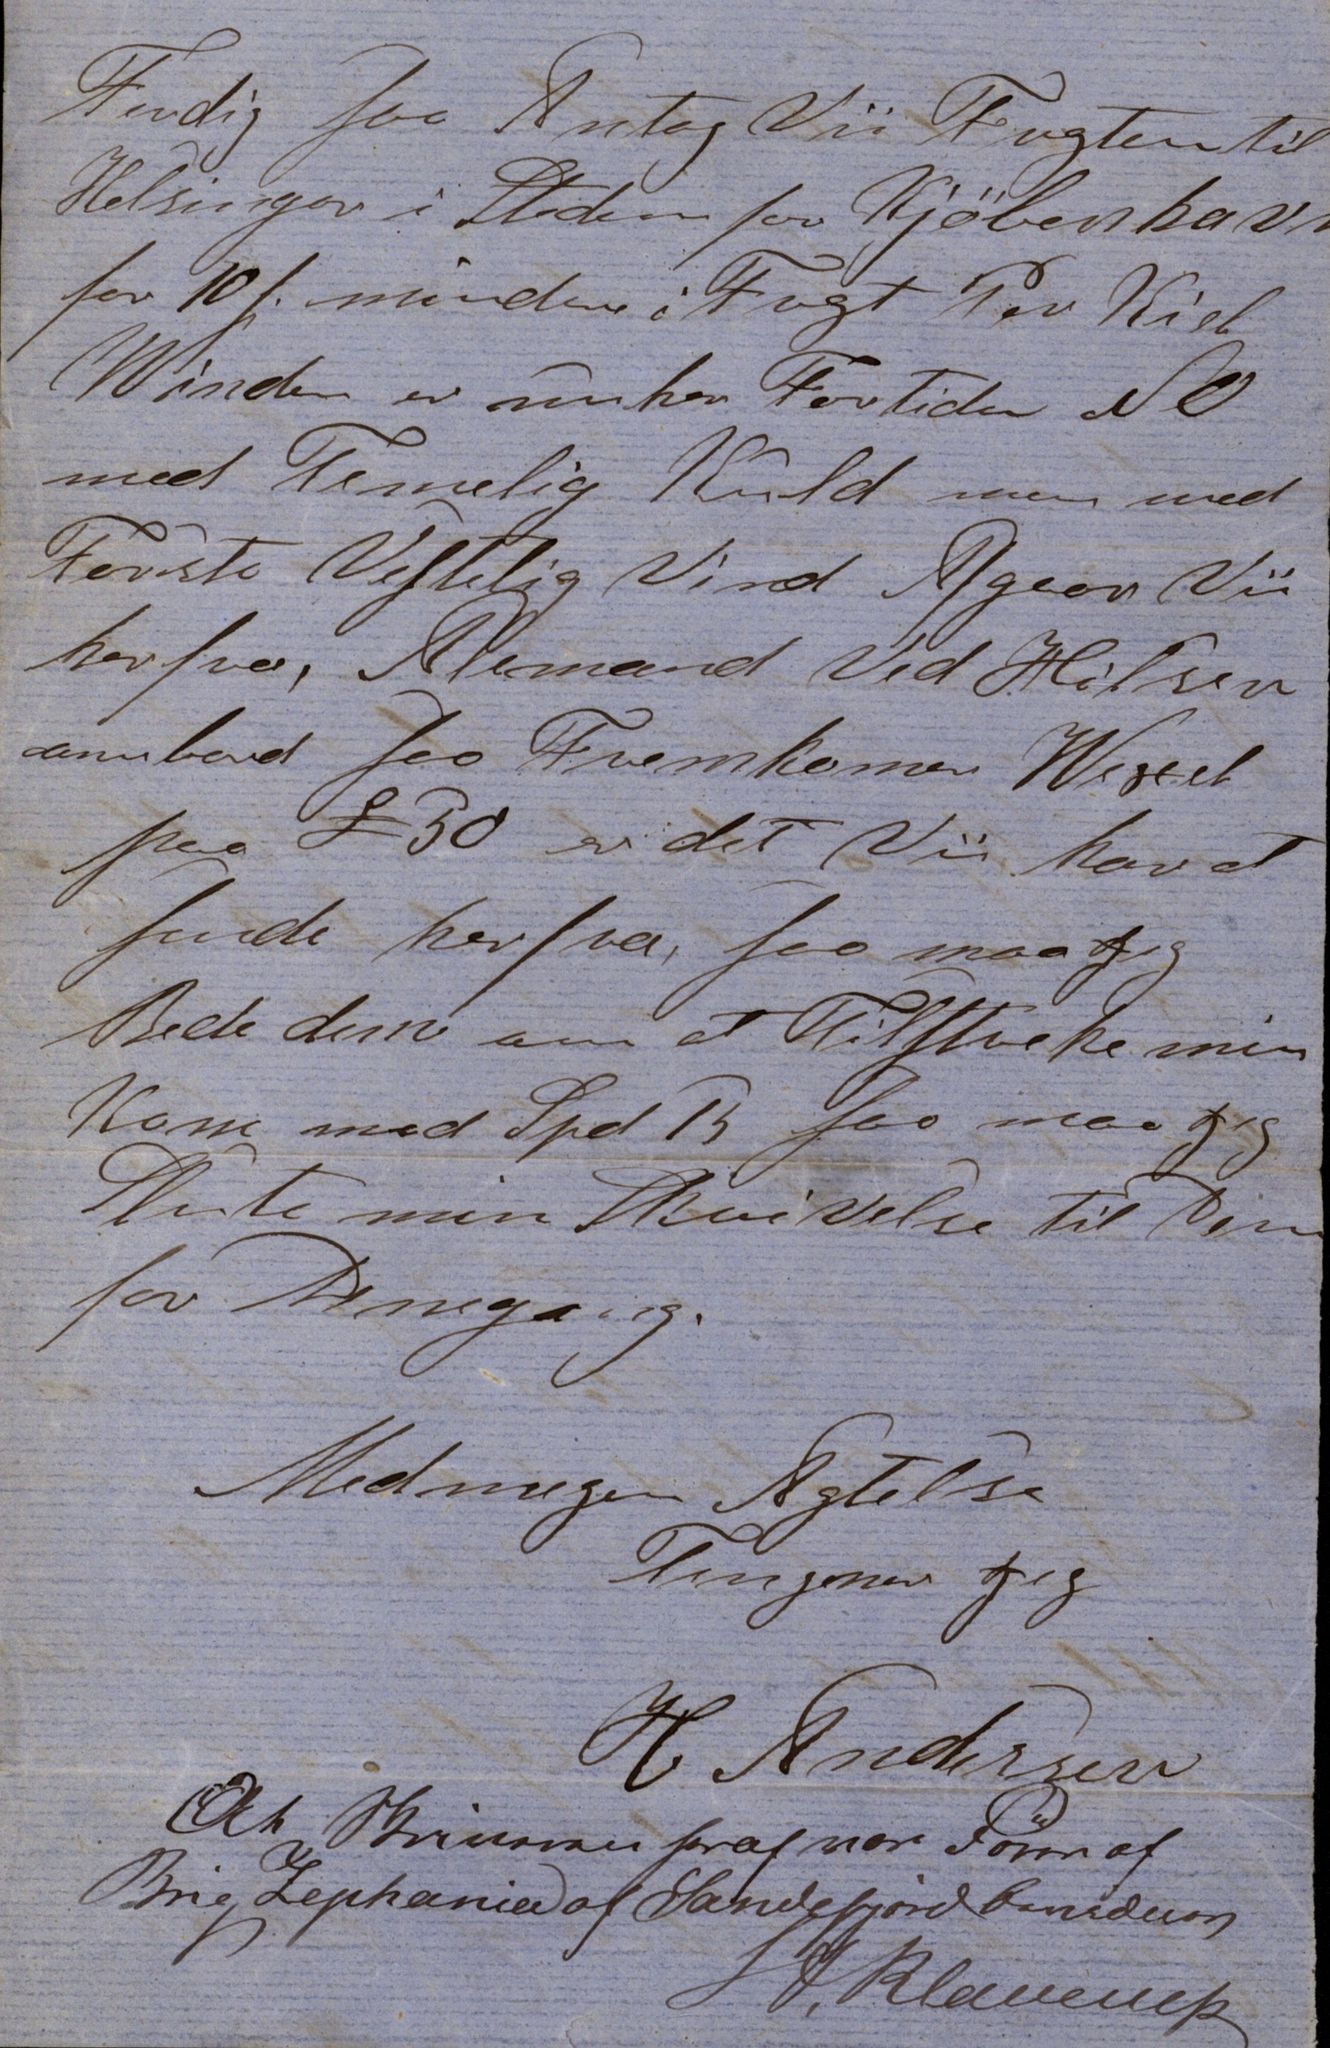 Ferdig saa Antog Vii Fragten til
Helsingør i Steden for Kjöbenhavn
for 10 f. mindre i Fragt Per Kiel
Winden er nu her Fortiden NO
med Temelig Kuld men med
Første Vestelig Vind Afgaar Vii
herfra, Allemand Ved Hilsen
ombord saa Fremkomer Wexel
paa £ 30 er det Vii har at
sende herfra, saa maa Jeg
Bede dem om at Tilstreke min
Kone med Spd 15 saa maa Jeg
Slute min Skrivelse til Dem
for Denegang.
Med megen Agtelse
Tengner Jeg
H Andersen
Brig Zephania af Sandefjord